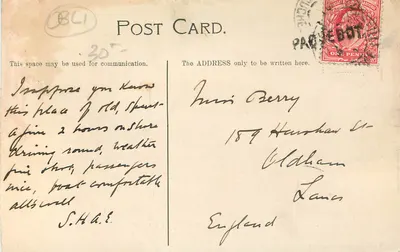 BC1
30-
POST CARD.
PAQUEBOT
This space may be used for communication.
The ADDRESS only to be written here.
I suppose you know
this place of old, spent
a fine 2 hours on shore
driving round, weather
fine &hot, passengers
nice, boat comfortable
alls well
S.H.A.E.
Miss Berry
189 Henshaw St
Oldham
Lancs
England